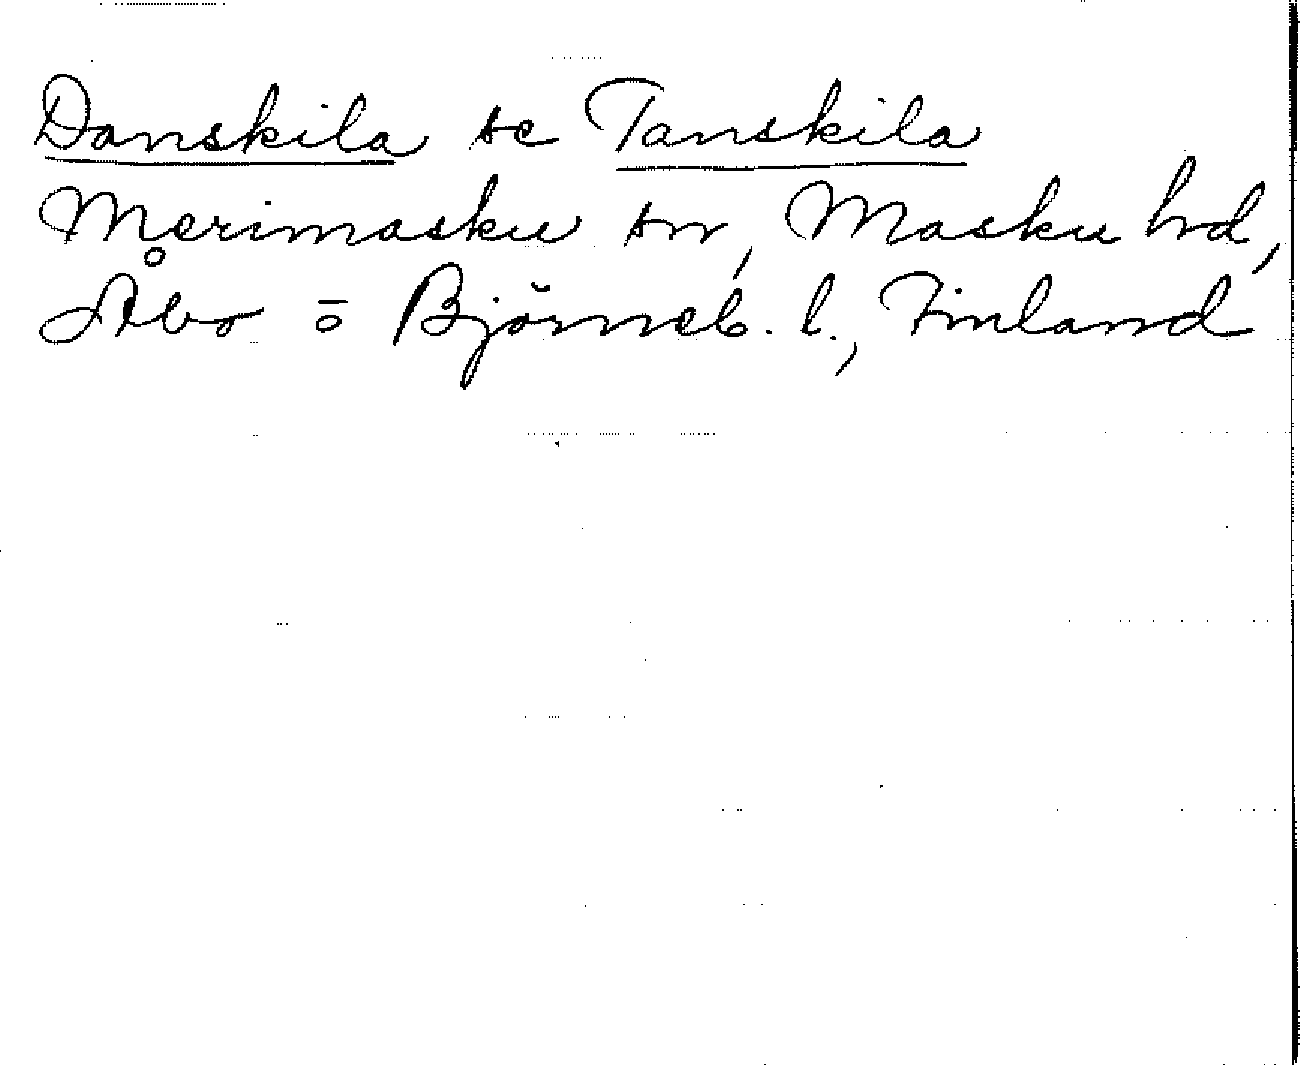 Danskila se Tanskila
Merimasku sn, Masku hd,
Åbo o Björneb. l., Finland